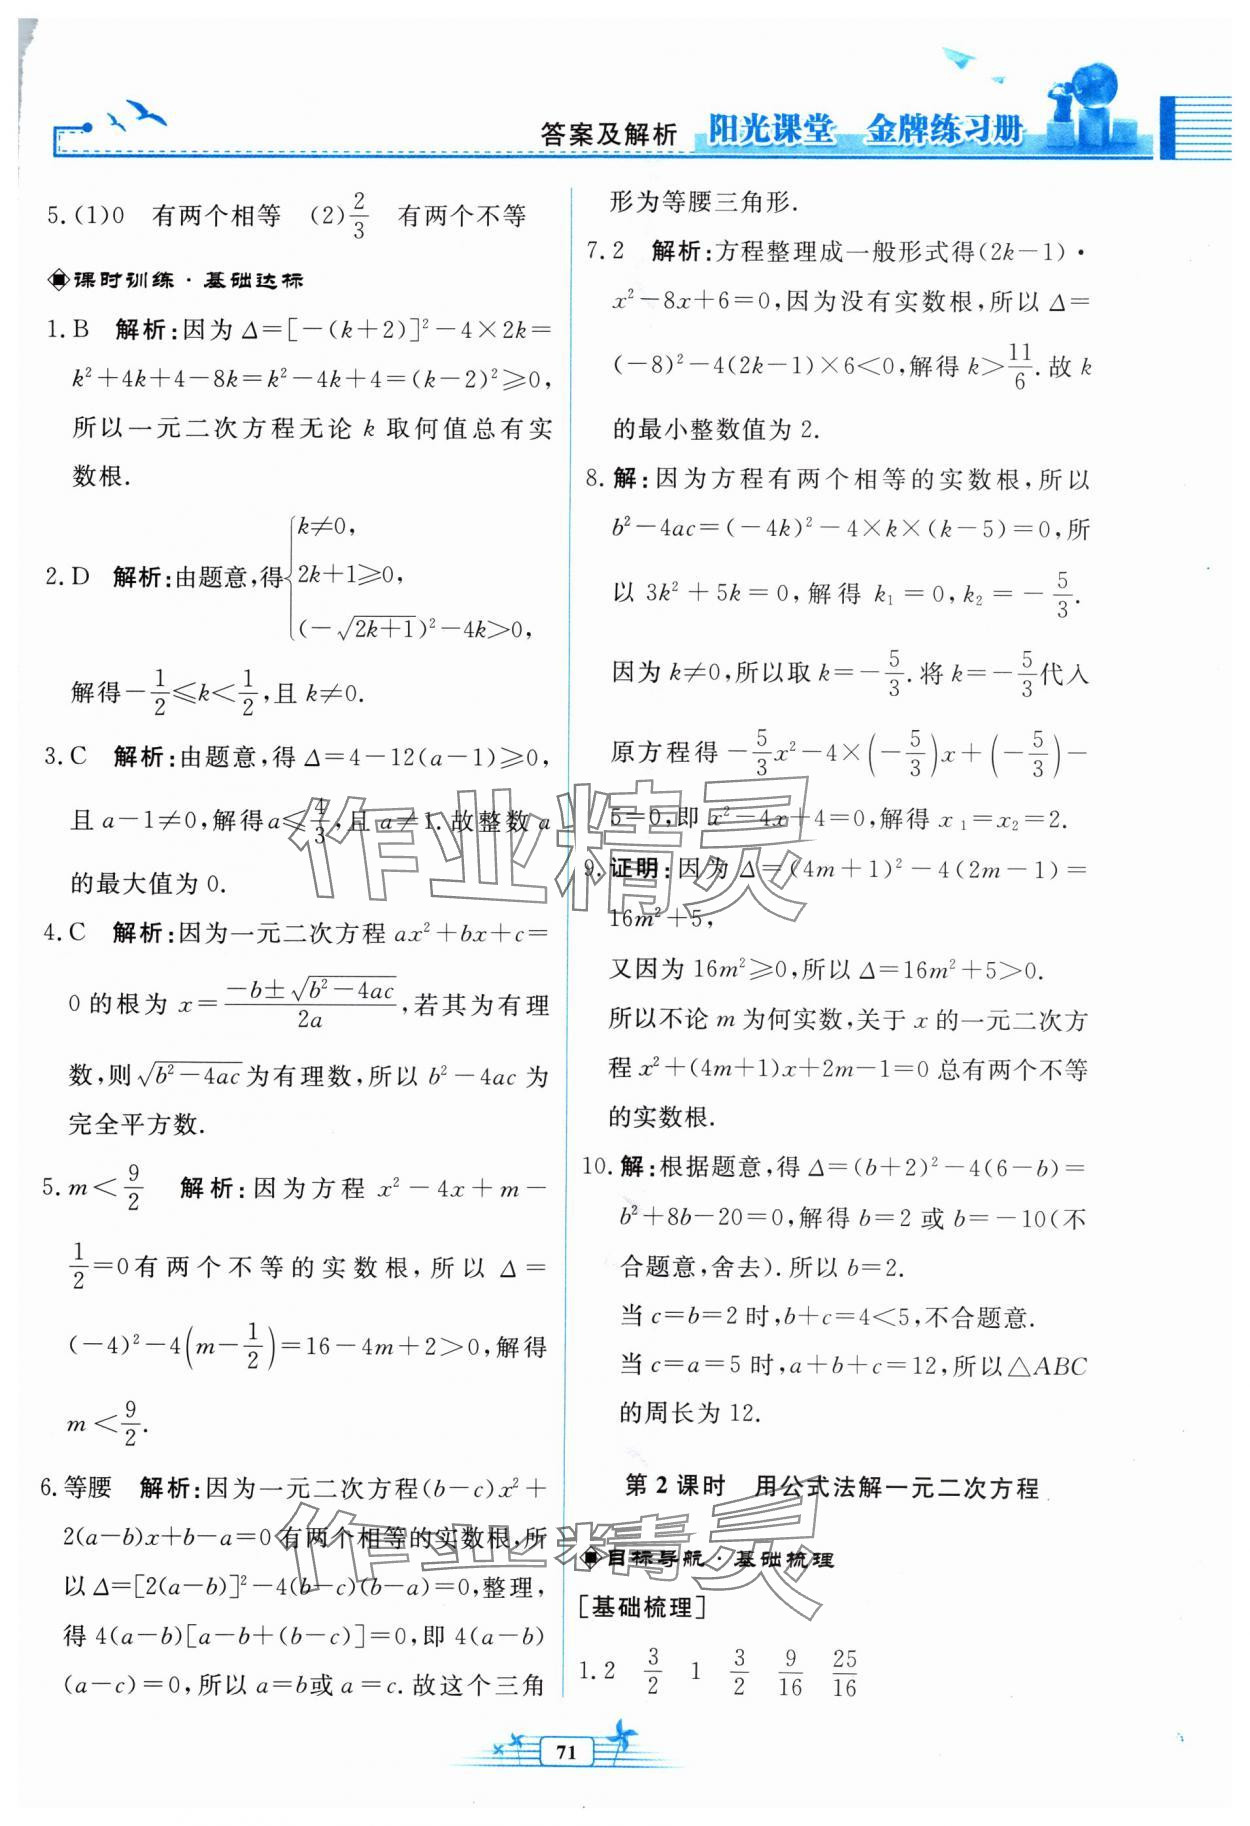 答案及解析 阳光课堂 金牌练习册
5.(1)0 有两个相等 (2)2/3 有两个不等
课时训练·基础达标
1.B 解析:因为 Δ=[-(k+2)]²-4×2k=
k²+4k+4-8k=k²-4k+4=(k-2)²≥0,
所以一元二次方程无论 k 取何值总有实
数根.
2.D 解析:由题意,得{k≠0,
2k+1≥0,
(-√(2k+1))²-4k>0,
解得-1/2≤k<1/2,且 k≠0.
3.C 解析:由题意,得 Δ=4-12(a-1)≥0,
且 a-1≠0,解得a≤4/3,且 a≠1.故整数 a
的最大值为 0.
4.C 解析:因为一元二次方程 ax²+bx+c=
0 的根为 x=(-b±√(b²-4ac))/2a,若其为有理
数,则√(b²-4ac)为有理数,所以 b²-4ac 为
完全平方数.
5.m<9/2 解析:因为方程 x²-4x+m-
1/2=0有两个不等的实数根,所以 Δ=
(-4)²-4(m-1/2)=16-4m+2>0,解得
m<9/2.
6.等腰 解析:因为一元二次方程(b-c)x²+
2(a-b)x+b-a=0 有两个相等的实数根,所
以 Δ=[2(a-b)]²-4(b-c)(b-a)=0,整理,
得 4(a-b)[a-b+(b-c)]=0,即 4(a-b)
(a-c)=0,所以 a=b或 a=c.故这个三角
形为等腰三角形.
7.2 解析:方程整理成一般形式得(2k-1)·
x²-8x+6=0,因为没有实数根,所以 Δ=
(-8)²-4(2k-1)×6<0,解得 k>11/6.故 k
的最小整数值为 2.
8.解:因为方程有两个相等的实数根,所以
b²-4ac=(-4k)²-4×k×(k-5)=0,所
以 3k²+5k=0,解得 k₁=0,k₂=-5/3.
因为 k≠0,所以取 k=-5/3.将 k=-5/3代入
原方程得 -5/3x²-4×(-5/3)x+(-5/3)-
5=0,即 x²-4x+4=0,解得 x₁=x₂=2.
9.证明:因为 Δ=(4m+1)²-4(2m-1)=
16m²+5,
又因为 16m²≥0,所以 Δ=16m²+5>0.
所以不论 m 为何实数,关于 x 的一元二次方
程 x²+(4m+1)x+2m-1=0 总有两个不等
的实数根.
10.解:根据题意,得 Δ=(b+2)²-4(6-b)=
b²+8b-20=0,解得 b=2 或 b=-10(不
合题意,舍去).所以 b=2.
当 c=b=2 时,b+c=4<5,不合题意.
当 c=a=5 时,a+b+c=12,所以△ABC
的周长为 12.
第 2 课时 用公式法解一元二次方程
目标导航·基础梳理
[基础梳理]
1.2 3/2 1 3/2 9/16 25/16
71
作业精灵
作业精灵